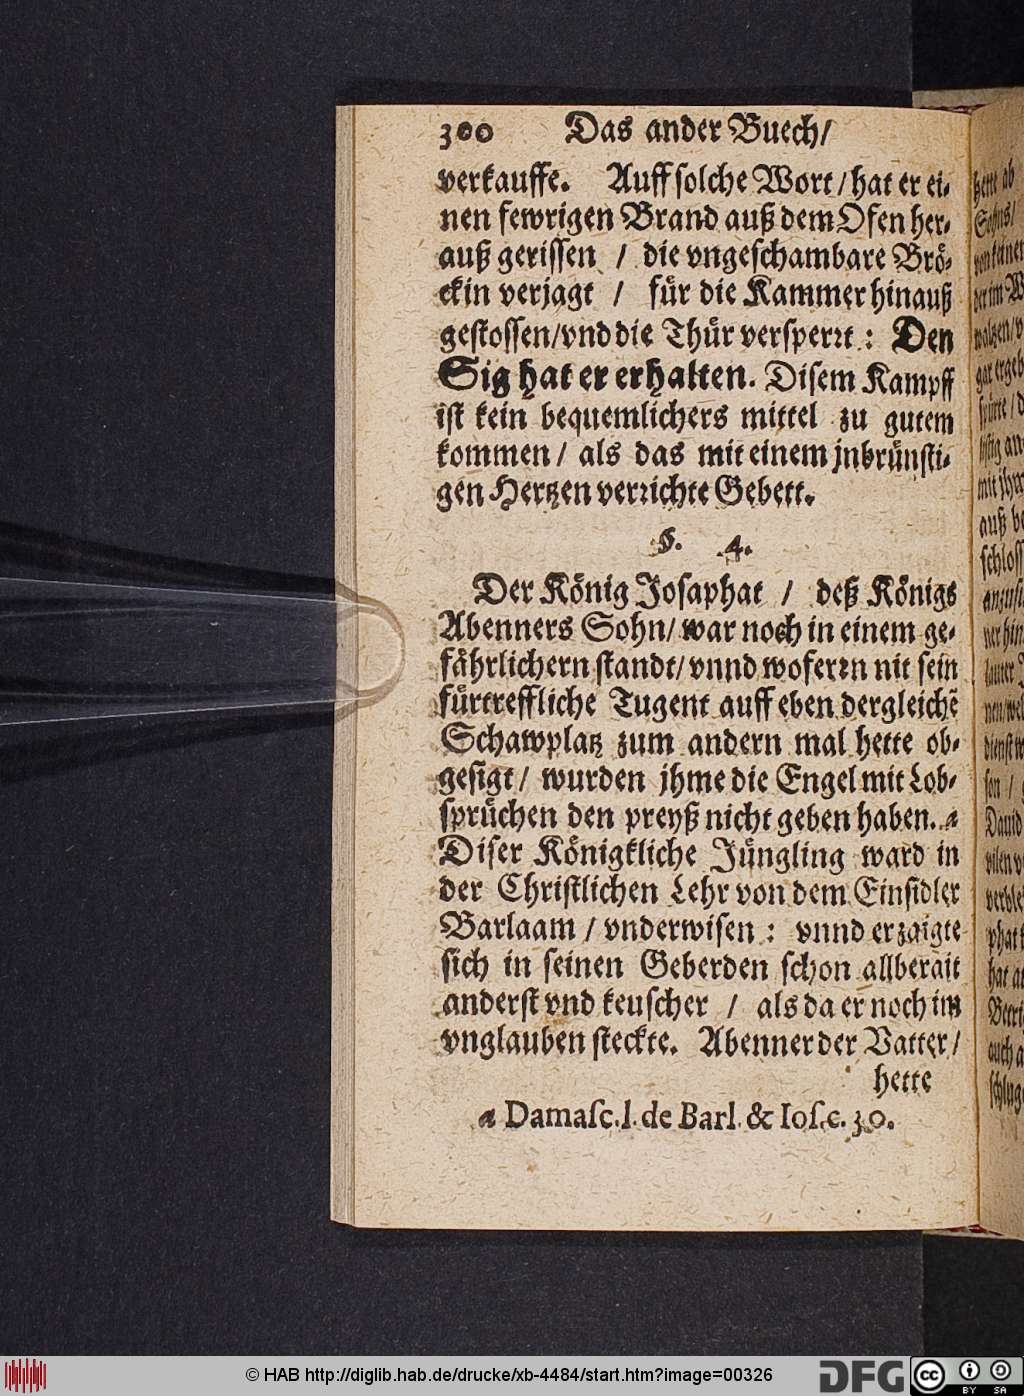 300 Das ander Buech/
verkauffe. Auff solche Wort / hat er ei-
nen fewrigen Brand auß dem Ofen her-
auß gerissen / die vngeschambare Brö-
ckin verjagt / für die Kammer hinauß
gestossen/vnd die Thür versperꝛt : Den
Sig hat er erhalten. Disem Kampff
ist kein bequemlichers mittel zu gutem
kommen / als das mit einem jnbrünsti-
gen Hertzen verꝛichte Gebett.
§. 4.
Der König Josaphat / deß Königs
Abenners Sohn/ war noch in einem ge-
fährlichern standt/ vnnd woferꝛn nit sein
fürtreffliche Tugent auff eben dergleichẽ
Schawplatz zum andern mal hette ob-
gesigt / wurden jhme die Engel mit Lob-
sprüchen den preyß nicht geben haben. a
Diser Königkliche Jüngling ward in
der Christlichen Lehr von dem Einsidler
Barlaam / vnderwisen : vnnd erzaigte
sich in seinen Geberden schon allberait
anderst vnd keuscher / als da er noch im
vnglauben steckte. Abenner der Vatter /
hette
a Damasc. l. de Barl. & Ios. c. 30.
© HAB http://diglib.hab.de/drucke/xb-4484/start.htm?image=00326
DFG
cc BY SA